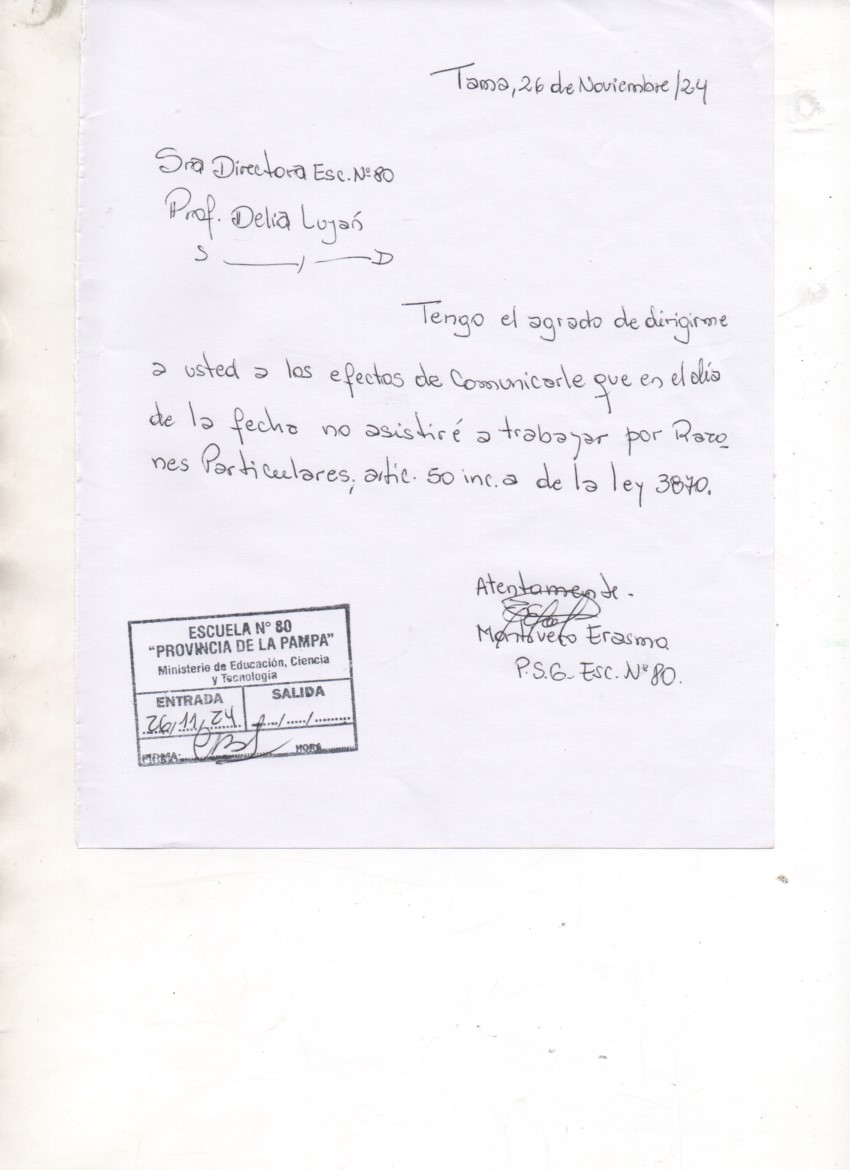 Tama, 26 de Noviembre/24
Sra Directora Esc. Nº 80
Prof. Delia Luján
S ——/—— D
Tengo el agrado de dirigirme
a usted a los efectos de Comunicarle que en el día
de la fecha no asistiré a trabajar por Razo
nes Particulares, artic. 50 inc. a de la ley 3870.
Atentamente.
Erasmo
P.S.G. Esc. Nº 80.
ESCUELA Nº 80
"PROVINCIA DE LA PAMPA"
Ministerio de Educación, Ciencia
y Tecnología
ENTRADA SALIDA
26/11/24 .../.../...
FIRMA: HORA